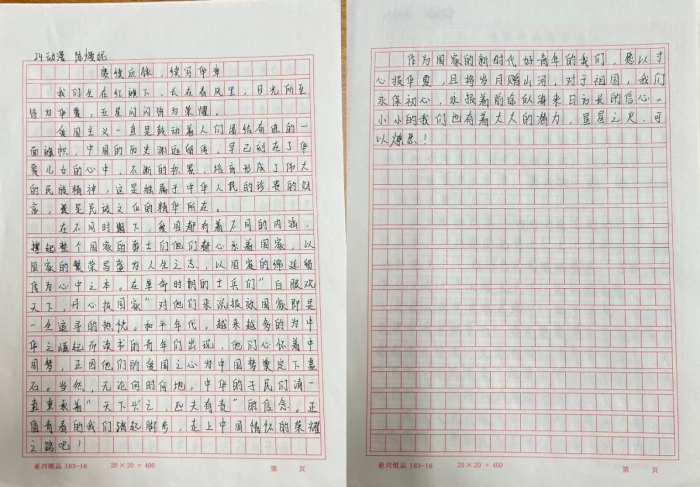 24动漫 陈
赓续血脉，续写华章
我们生在红旗下，长在春风里，目光所至
皆为华夏，五星闪闪皆为荣耀。
爱国主义一直是鼓动着人们团结奋进的一
面旗帜，中国的历史渊远绵长，早已刻在了华
夏儿女的心中，不断的积累，培育形成了伟大
的民族精神，这是独属于中华人民的珍贵的财
富，是民族文化的精华所在。
在不同时期下，爱国都有着不同的内涵，
撑起整个国家的勇士们他们都心系着国家，以
国家的繁荣昌盛为人生之志，以国家的绵延领
作为心中之本。在革命时期的士兵们"白眼欢
天下，丹心报国家"对他们来说报效国家即是
一生追寻的热忱。和平年代，越来越多的为中
华之崛起所读书的青年们出现，他们心怀着中
国梦，正因他们的爱国之心为中国梦奠定下基
石。当然，无论何时何地，中华的子民们须一
直秉承着"天下兴亡，匹夫有责"的信念。正
值青春的我们踏起脚步，走上中国情怀的荣耀
之路吧！
亚兴纸品 103-16 20×20＝400 第 页
作为国家的新时代好青年的我们，愿以寸
心报华夏，且将岁月赠山河。对于祖国，我们
永保初心，永抱着前途似海来日方长的信心。
小小的我们也有着大大的潜力，星星之火，可
以燎原！
亚兴纸品 103-16 20×20＝400 第 页